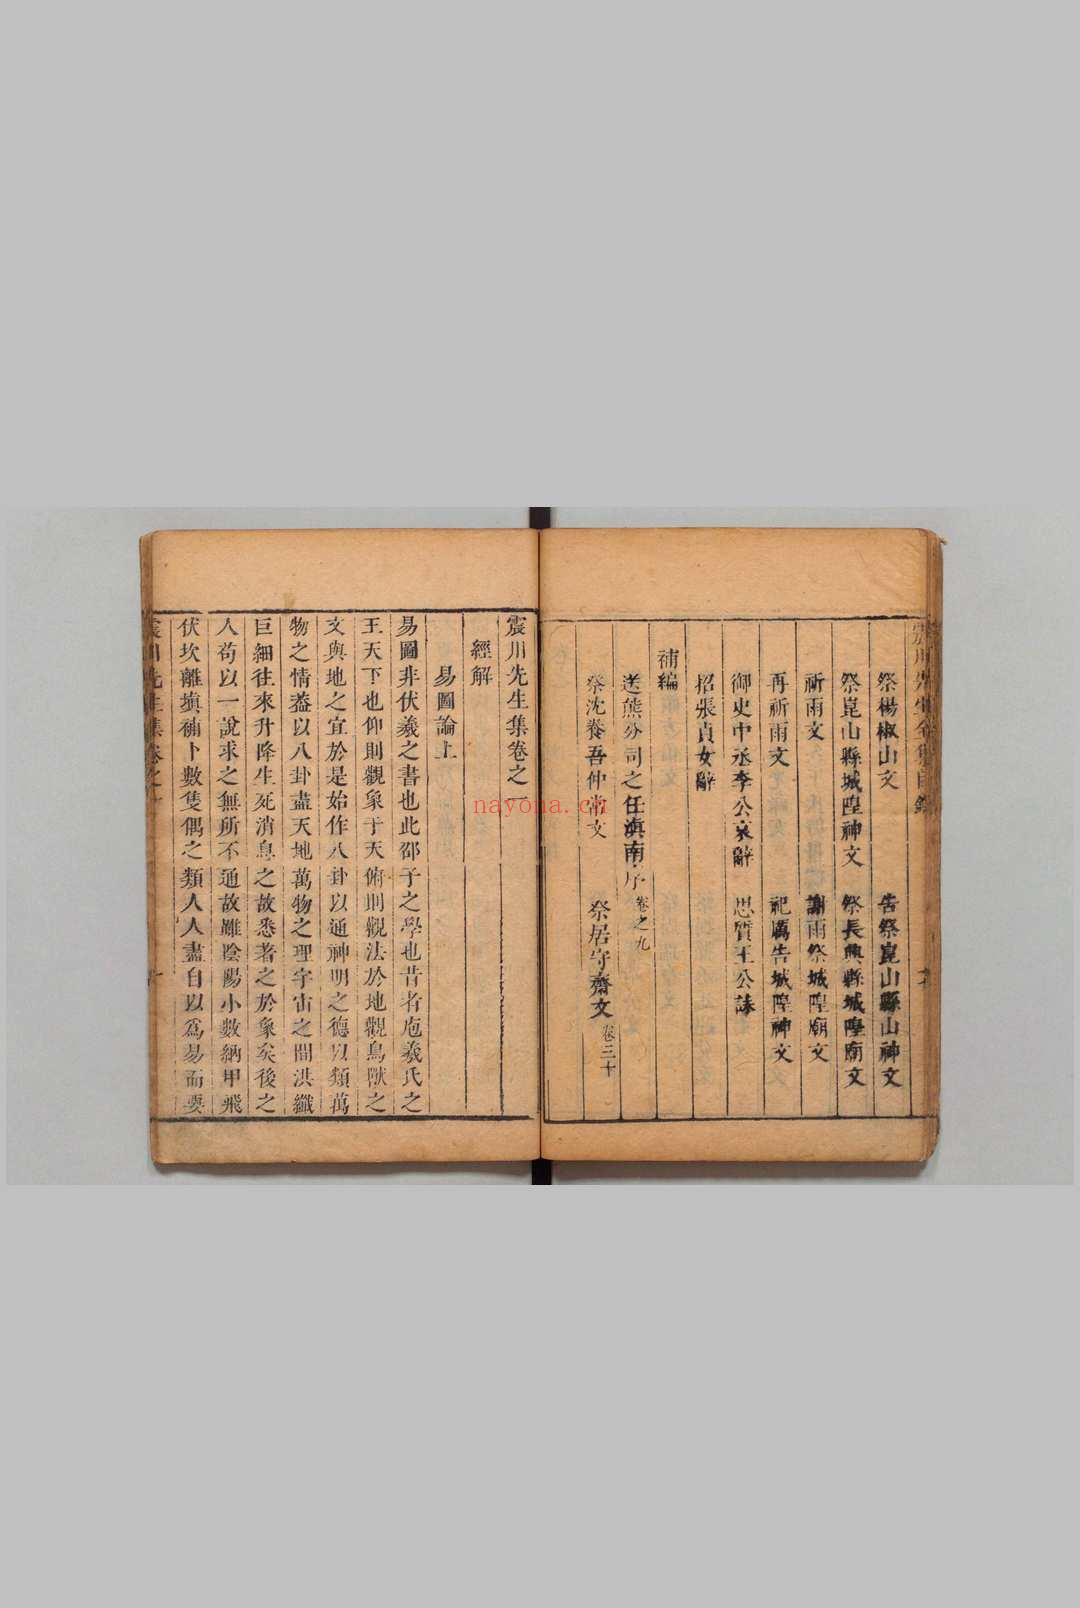 祭楊椒山文　告祭崑山縣山神文
祭崑山縣城隍神文　祭長興縣城隍廟文
祈雨文　謝雨祭城隍廟文
再祈雨文　祀厲告城隍神文
御史中丞李公哀辭　思質王公誄
招張貞女辭
補編
送熊分司之任滇南序 卷之九
祭沈養吾仲常文　祭居守齋文 卷三十
震川先生集卷之一
經解
易圖論上
易圖非伏羲之書也此邵子之學也昔者庖羲氏之
王天下也仰則觀象于天俯則觀法於地觀鳥獸之
文與地之宜於是始作八卦以通神明之德以類萬
物之情葢以八卦盡天地萬物之理宇宙之間洪纖
巨細往來升降生死消息之故悉著之於象矣後之
人苟以一說求之無所不通故雖陰陽小數納甲飛
伏坎離填補卜數隻偶之類人人盡自以爲易而要
nayona.cn